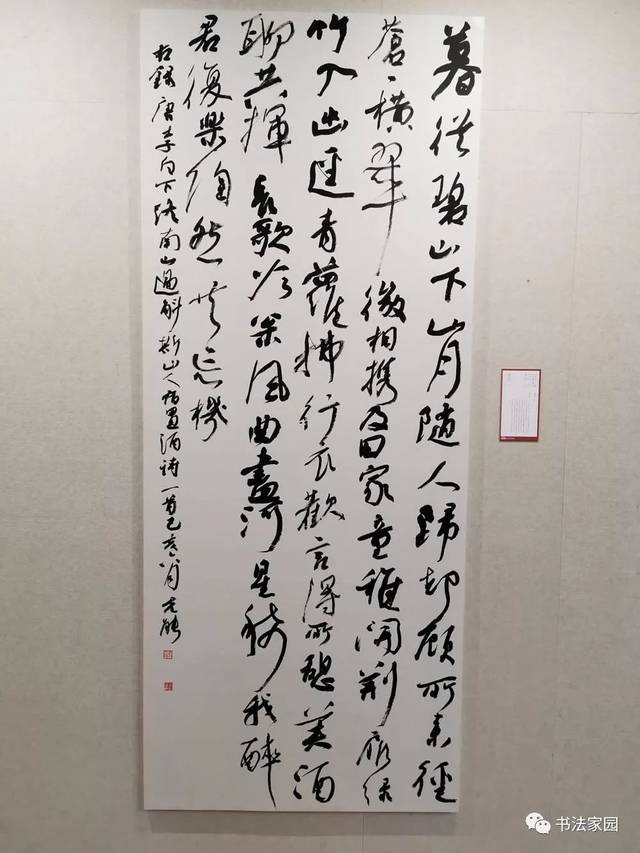 暮從碧山下山月隨人歸却顧所來徑
蒼蒼橫翠微相携及田家童稚開荊扉緑
竹入幽逕青蘿拂行衣歡言得所憩美酒
聊共揮長歌吟松風曲盡河星稀我醉
君復樂陶然共忘機
右錄唐李白下終南山過斛斯山人宿置酒詩一首己亥八月
书法家园